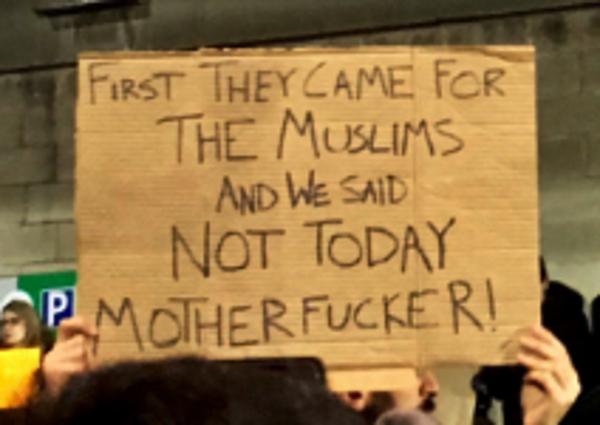 FIRST THEY CAME FOR
THE MUSLIMS
AND WE SAID
NOT TODAY
MOTHERFUCKER!
P